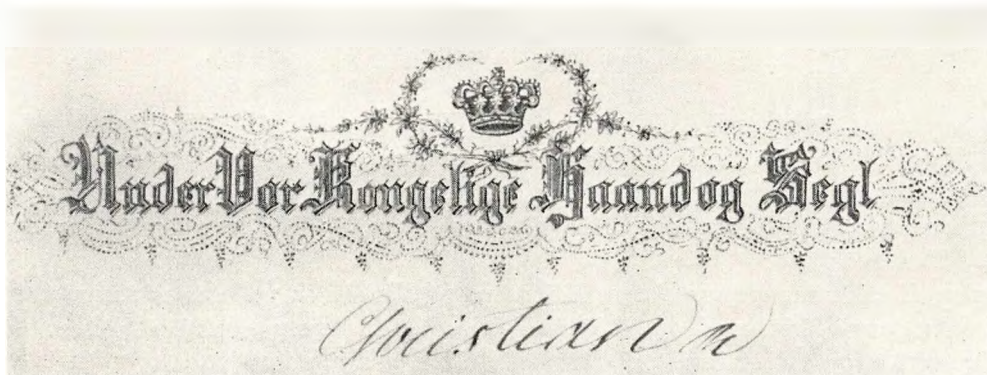 Under Vor Kongelige Haand og Segl
Christian R